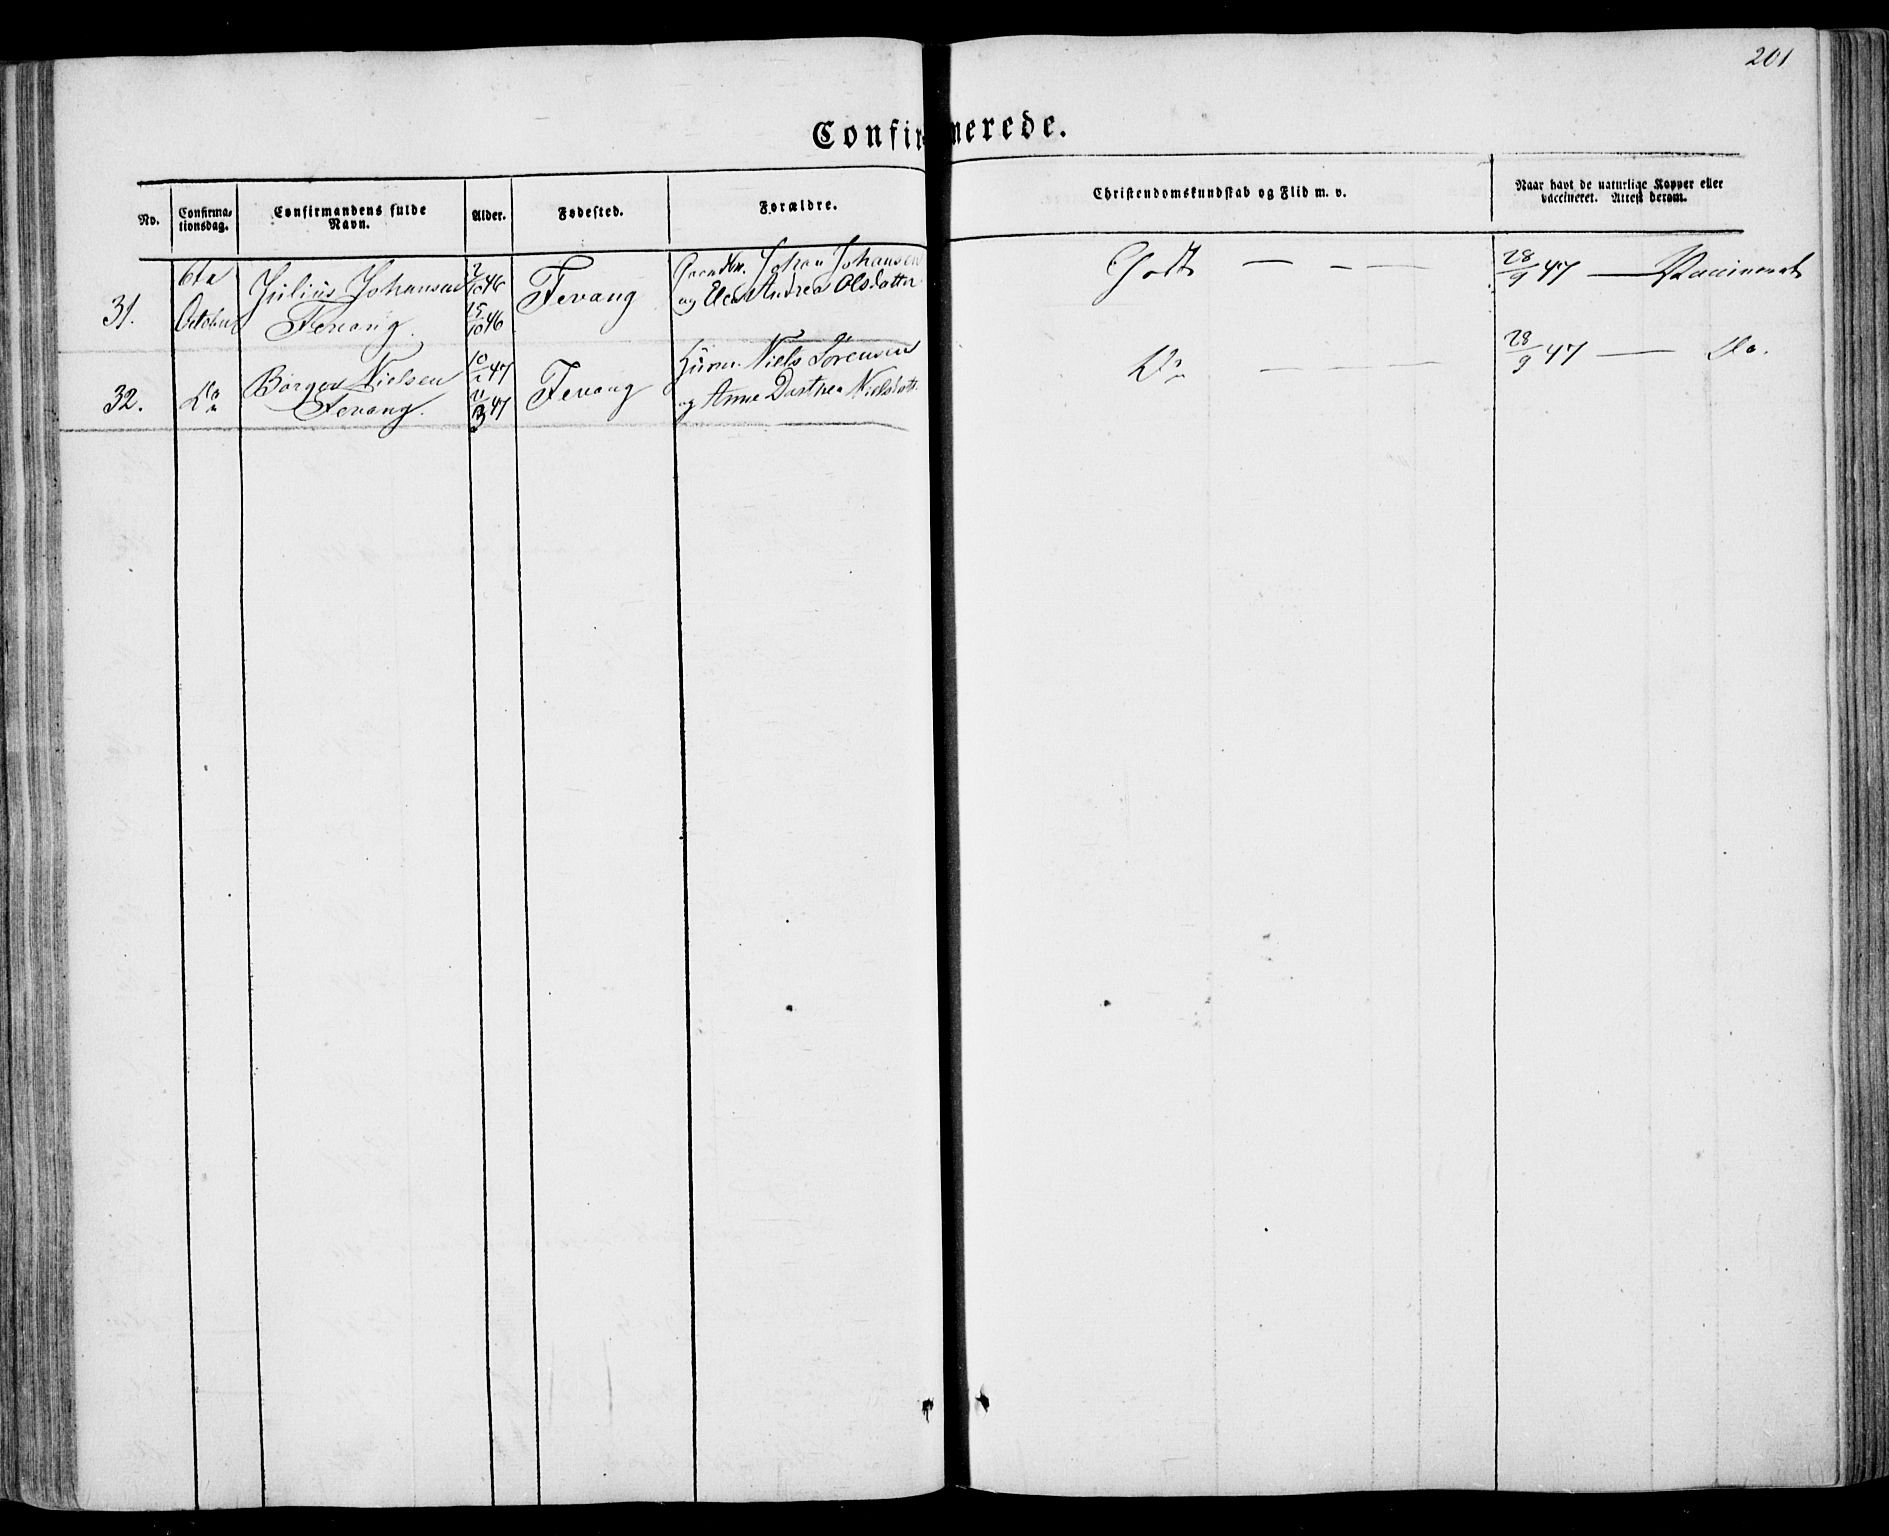 201
Confirmerede.
No.
Confirma-
tionsdag.
Confirmandens fulde
Navn.
Alder.
Fødested.
Forældre.
Christendomskundskab og Flid m. v.
Naar havt de naturlige Kopper eller
vaccineret. Attest derom.
31.
6te
October
Julius Johansen
Fevang
2/10 46
15/10 46
Fevang
Johan Johansen
og Elen Andrea Olsdatter
Godt — — — —
28/9 47 — Vaccineret
32.
Do
Børger Nielsen
Fevang.
10/1 47
47
Fevang
Niels Sørensen
og Anne Dorthea Nielsdatt
Do — — — —
28/9 47 — Do.